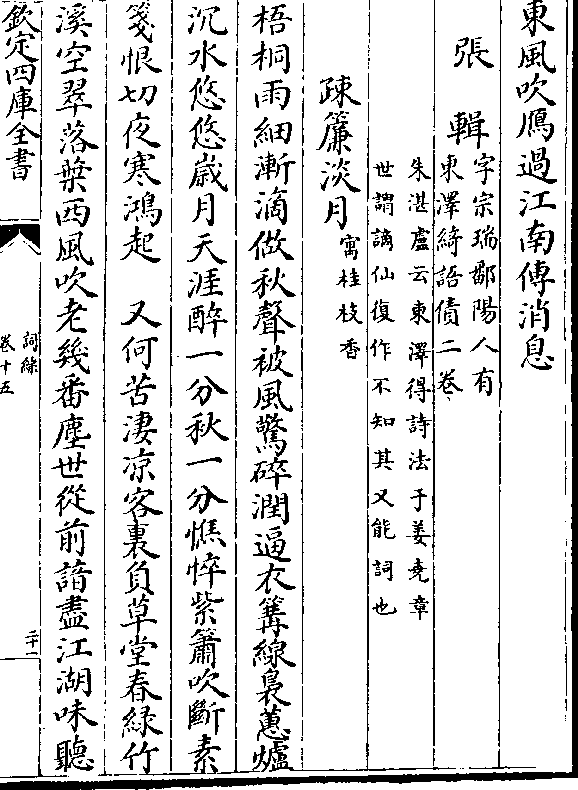 東風吹鴈過江南傳消息
張輯字宗瑞鄱陽人有
東澤綺語債二卷
朱湛盧云東澤得詩法于姜堯章
世謂謫仙復作不知其又能詞也
疎簾淡月寓桂枝香
梧桐雨細漸滴做秋聲被風驚碎潤逼衣篝線裊蕙爐
沉水悠悠歲月天涯醉一分秋一分憔悴紫簫吹斷素
箋恨切夜寒鴻起 又何苦淒凉客裏負草堂春緑竹
溪空翠落葉西風吹老幾番塵世從前諳盡江湖味聽
欽定四庫全書
詞綜
卷十五
二十一